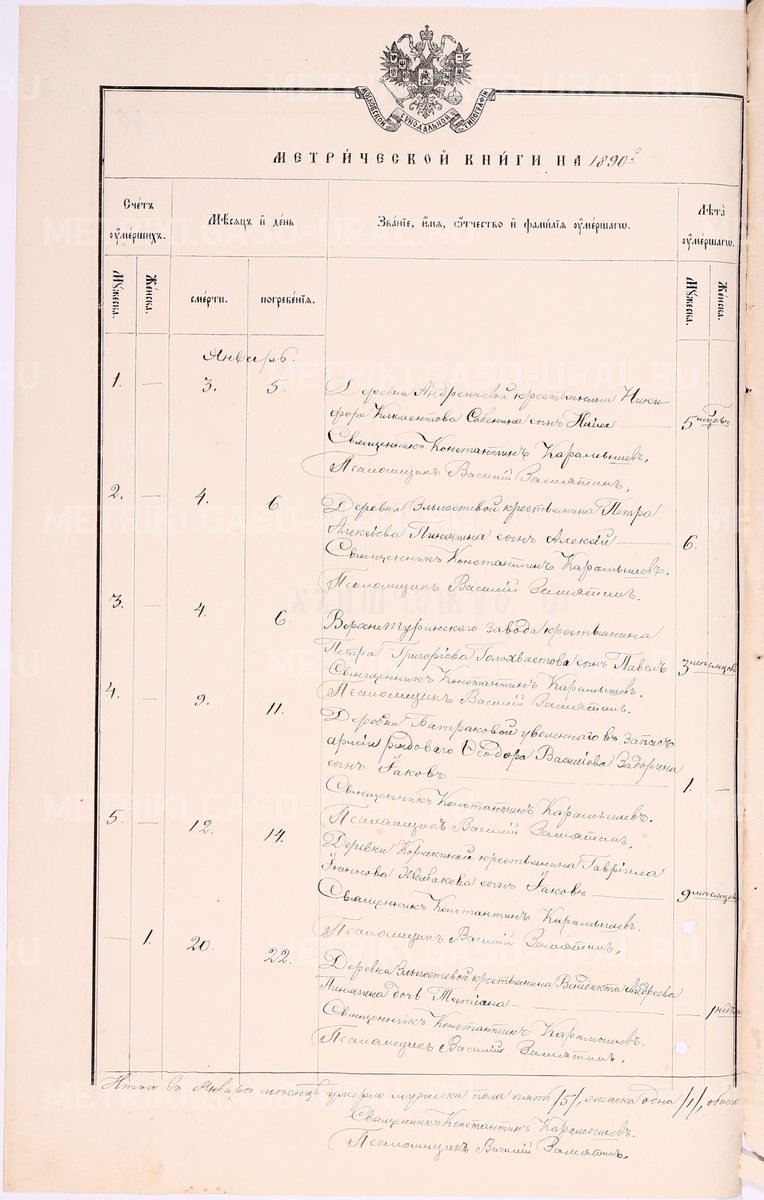 МОСКОВСКОЙ СѴНОДАЛЬНОЙ ТИПОГРАФІИ
МЕТРИ́ЧЕСКОЙ КНИ́ГИ НА 1890 г
Сче́тъ ѹме́ршихъ.
Мѣ́сяцъ и́ де́нь
Зва́нїе, и́мя, ѻ́тчество и́ фамилїя ѹме́ршагѡ.
Лѣ́та ѹме́ршагѡ.
Мꙋжеска.
Же́нска.
сме́рти.
погребе́нїя.
Мꙋжеска.
Же́нска.
Январь.
1. — 3. 5. Деревни Андреичевой крестьянина Ники-
фора Климентова сынъ 5 мѣсяц.
Священникъ Константинъ Карамышевъ.
Псаломщикъ Василій Замятинъ.
2. — 4. 6. Деревни Злыгостевой крестьянина Петра
Алексѣева Пинягина сынъ Алексѣй — 6.
Священникъ Константинъ Карамышевъ.
Псаломщикъ Василій Замятинъ.
3. — 4. 6. Верхнетуринскаго завода крестьянина
Петра Григоріева Голохвастова сынъ Павелъ 3 мѣсяцевъ
Священникъ Константинъ Карамышевъ.
Псаломщикъ Василій Замятинъ.
4. — 9. 11. Деревни Батраковой уволеннаго въ запасъ
арміи рядового Ѳеодора Василіева Задорина
сынъ Іаковъ — 1. —
Священникъ Константинъ Карамышевъ.
Псаломщикъ Василій Замятинъ.
5. — 12. 14. Деревни Корелиной крестьянина Гавріила
сынъ Іаковъ — 9 мѣсяцев
Священникъ Константинъ Карамышевъ.
Псаломщикъ Василій Замятинъ.
— 1. 20. 22. Деревни Злыгостевой крестьянина Венедикта Андреева
Пинягина дочь Татіана — 1 недѣли
Священникъ Константинъ Карамышевъ.
Псаломщикъ Василій Замятинъ.
Итого въ Январѣ мѣсяцѣ умерло мужеска пола пять /5/, женска одна /1/, обоего
Священникъ Константинъ Карамышевъ.
Псаломщикъ Василій Замятинъ.
METRIKI.GASO-URAL.RU